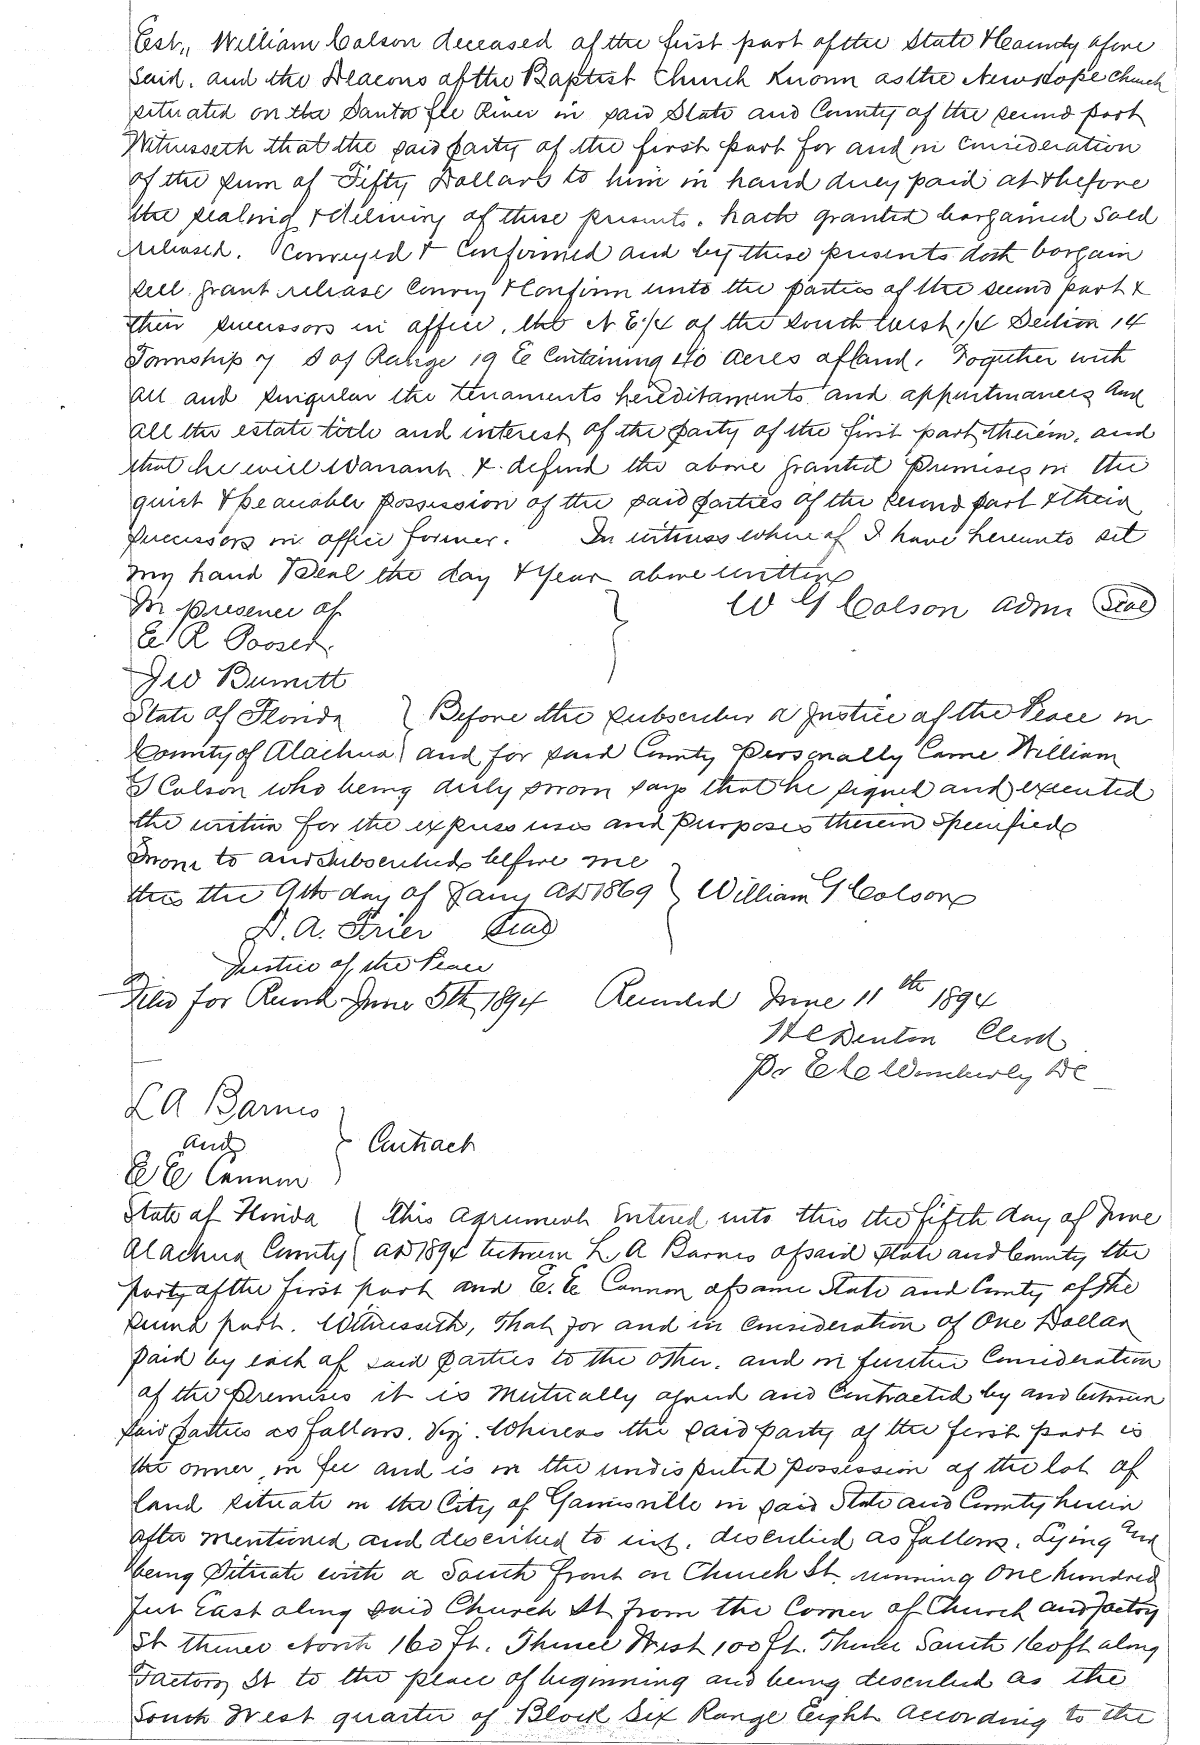 Est,, William Colson deceased of the first part of the State & County afore
said. and the Deacons of the Baptist Church Known as the New Hope Church
situated on the Santa fe River in said State and County of the second part
Witnesseth that the said party of the first part for and in consideration
of the sum of Fifty Dollars to him in hand duey paid at & before
the sealing & delivery of these presents. hath granted bargained Sold
released. Conveyed & Confirmed and by these presents doth bargain
sell grant release Convey & Confirm unto the parties of the second part &
their successors in office, the N E 1/4 of the south west 1/4 Section 14
Township 7 S of Range 19 E Containing 40 acres of land. Together with
all and singular the tenaments hereditaments and appurtinances and
all the estate title and interest of the party of the first part therein, and
that he will Warrant & defend the above granted premises in the
quiet & peaceable possession of the said parties of the second part & their
successors in office former. In witness where of I have hereunto set
my hand & Seal the day & Year above written
In presence of
E R Pooser.
W G Colson admr Seal
Geo Burnett
State of Florida } Before the subscriber a Justice of the Peace in
County of Alachua } and for said County personally Came William
G Colson who being duly sworn says that he signed and executed
the written for the express uses and purposes therein Specified
Sworn to and subscribed before me
this the 9th day of Jany AD 1869 } William G Colson
D. A. Frier Seal
Justice of the Peace
Filed for Record June 5th 1894 Recorded June 11th 1894
H C Denton Clerk
Pr E C Wimberly DC
L A Barnes
and } Contract
E E Cannon
State of Florida ( This agreement Entered into this the fifth day of June
Alachua County ( AD 1894 between L. A Barnes of said state and County the
party of the first part and E. E Cannon of same State and County of the
second part. Witnesseth, That for and in consideration of One Dollar
paid by each of said parties to the other. and in further Consideration
of the Premises it is Mutually agreed and Contracted by and between
said parties as follows. Viz. Whereas the said party of the first part is
the owner in fee and is in the undisputed possession of the lot of
land situate in the City of Gainesville in said State and County herein
after mentioned and described to wit. described as follows. Lying and
being Situate with a South front on Church St. running One hundred
feet East along said Church St from the Corner of Church and Factory
St thence North 160 ft. Thence West 100 ft. Thence South 160 ft along
Factory St to the place of beginning and being described as the
South West quarter of Block Six Range Eight according to the